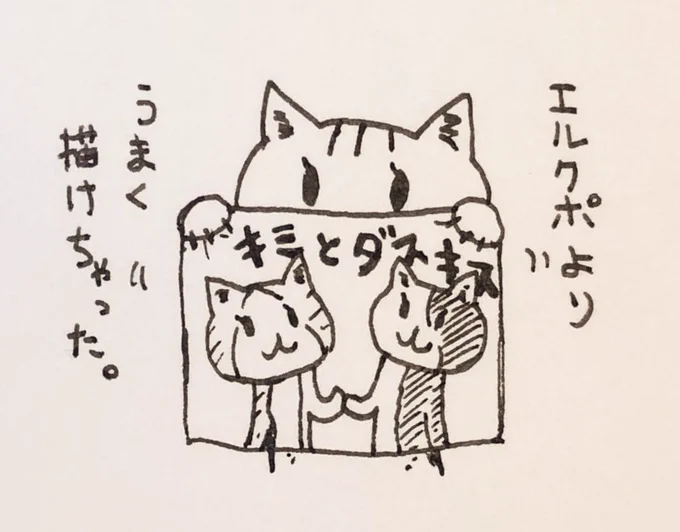 エルクポより
キミとダスキス
うまく
描けちゃった。